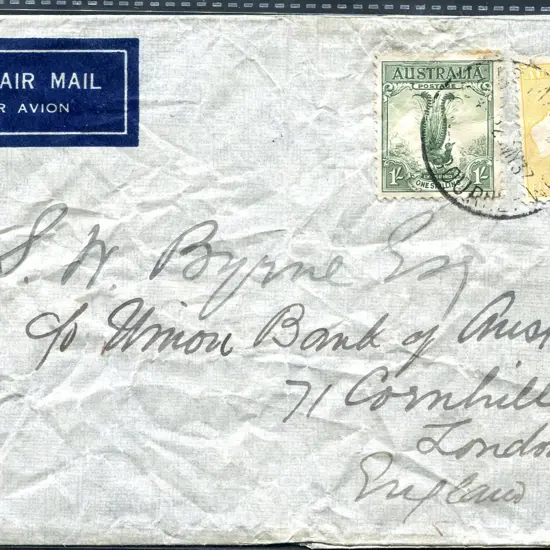 AIR MAIL
AVION
AUSTRALIA
POSTAGE
1/- ONE SHILLING 1/-
S. W. Byrne Esq
c/o Union Bank of Aust
71 Cornhill
London
England